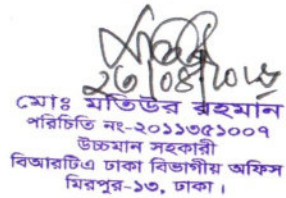 ২৩/০৪/২০১৫
মোঃ মতিউর রহমান
পরিচিতি নং-২০১১৩৫১০০৭
উচ্চমান সহকারী
বিআরটিএ ঢাকা বিভাগীয় অফিস
মিরপুর-১৩, ঢাকা।